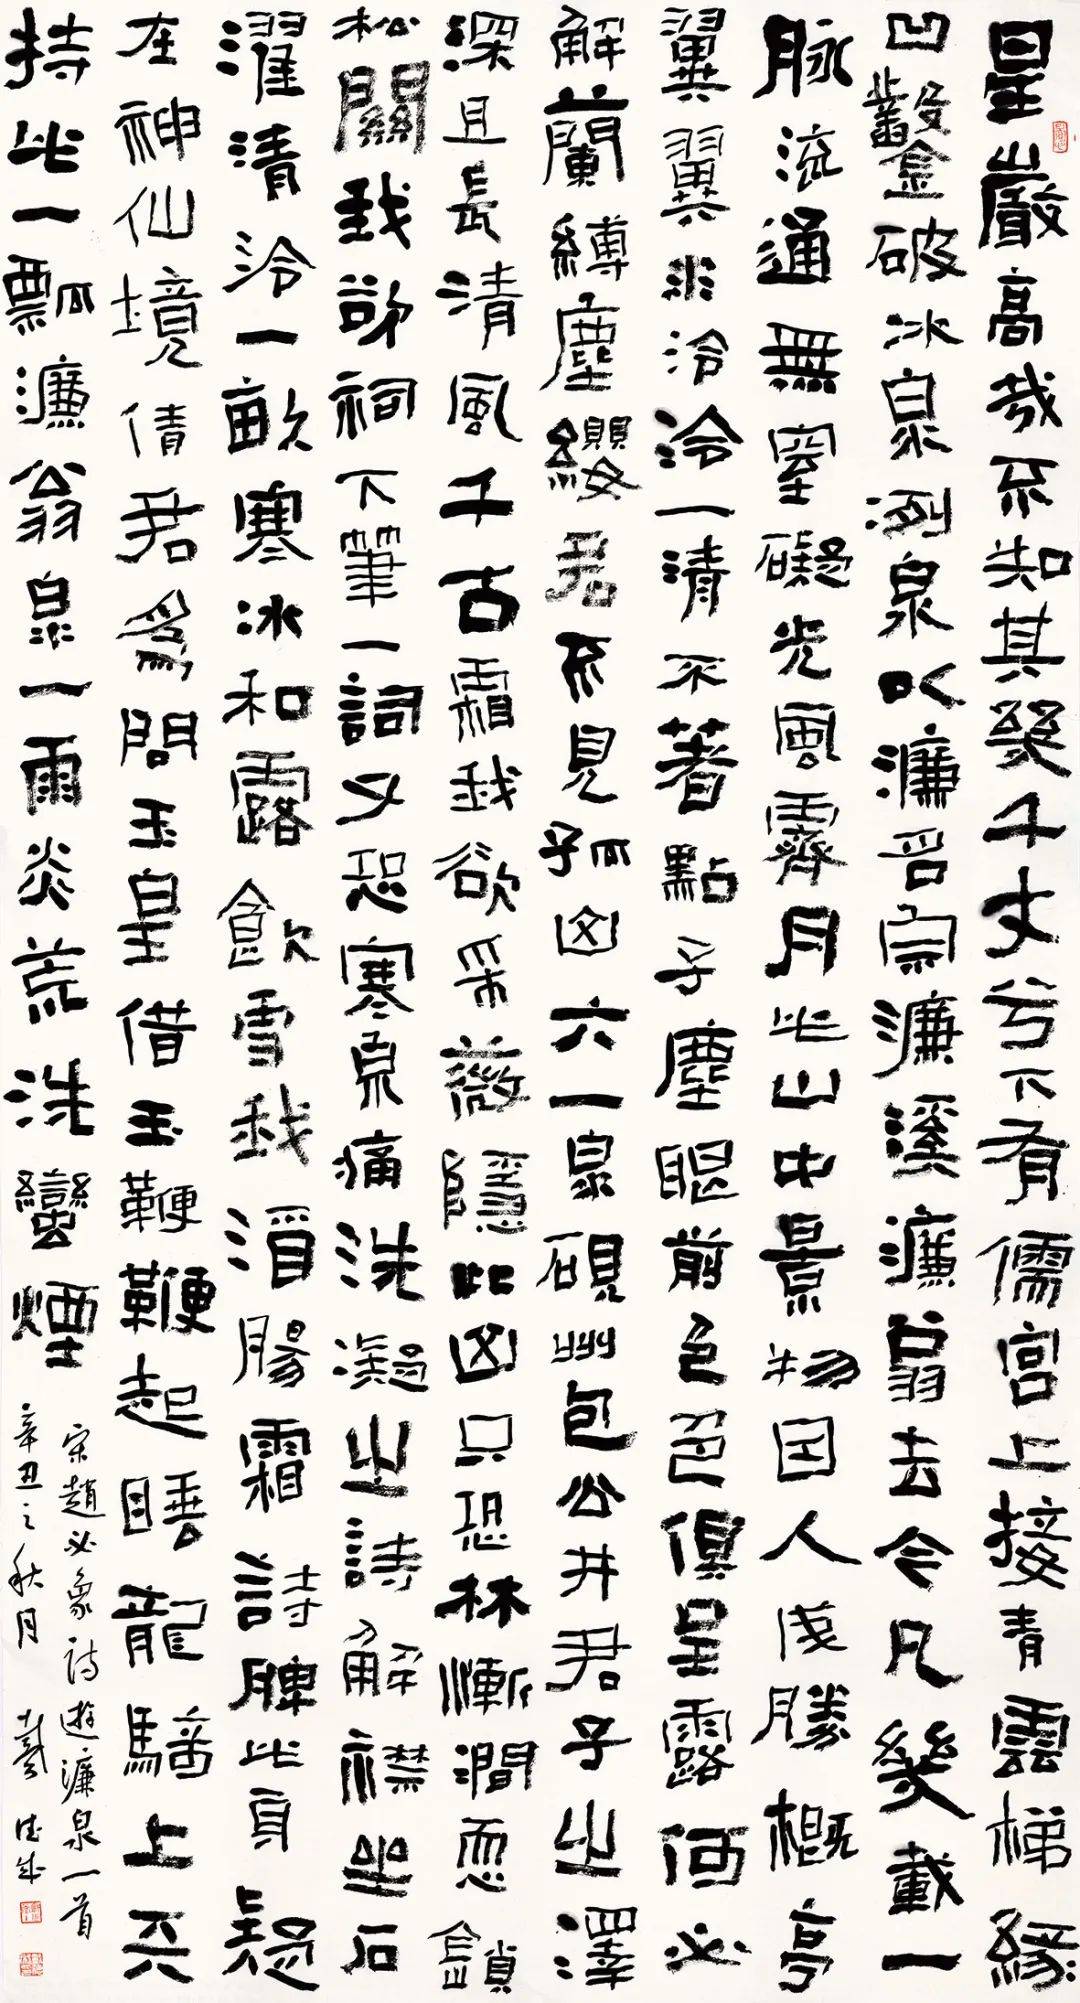 星巖高哉不知其幾千丈兮下有儒宮上接青雲梯緣
凹鑿破冰泉洌泉以濂名宗濂溪濂翁去今凡幾載一
脉流通無窒礙光風霽月此山中景物因人成勝概亭
翼翼水泠泠一清不著點子塵眼前色色俱呈露何必
解蘭縛塵纓君不見孤山六一泉硯州包公井君子之澤
深且長清風千古霜我欲采薇隱此山只恐林慚澗恧鎖
松關我欲祠下筆一詞又恐寒泉痛洗凝之詩解襟坐石
濯清泠一畝寒冰和露飲雪我腸霜詩脾此身疑
在神仙境倩君為問玉皇借玉鞭鞭起睡龍騎上天
持此一瓢濂翁泉一雨炎荒洗蠻煙
宋趙必象詩遊濂泉一首
辛丑之秋月